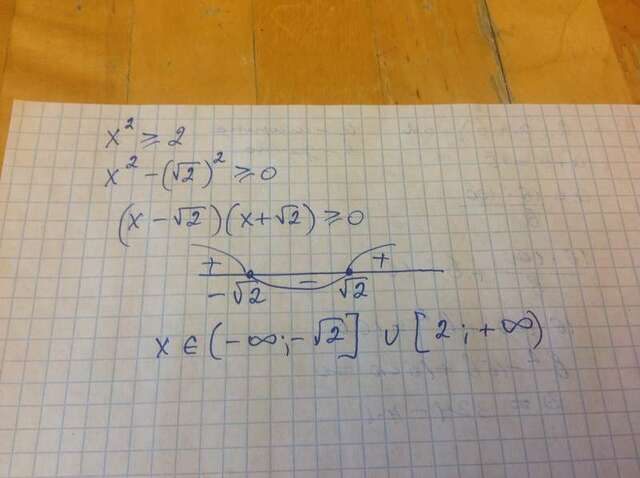 x² ≥ 2
x² - (√2)² ≥ 0
(x - √2)(x + √2) ≥ 0
+ - +
-√2 √2
x ∈ (-∞; -√2] ∪ [2; +∞)